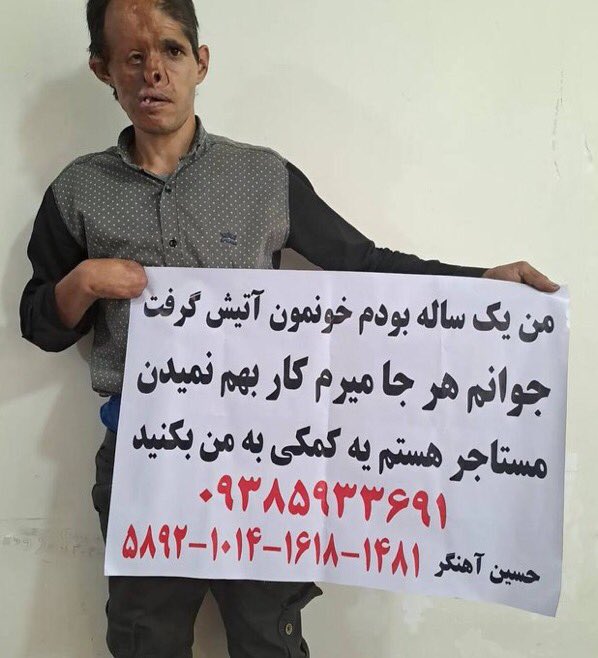 من یک ساله بودم خونمون آتیش گرفت
جوانم هر جا میرم کار بهم نمیدن
مستاجر هستم یه کمکی به من بکنید
۰۹۳۸۵۹۳۳۶۹۱
حسین آهنگر ۵۸۹۲-۱۰۱۴-۱۶۱۸-۱۴۸۱